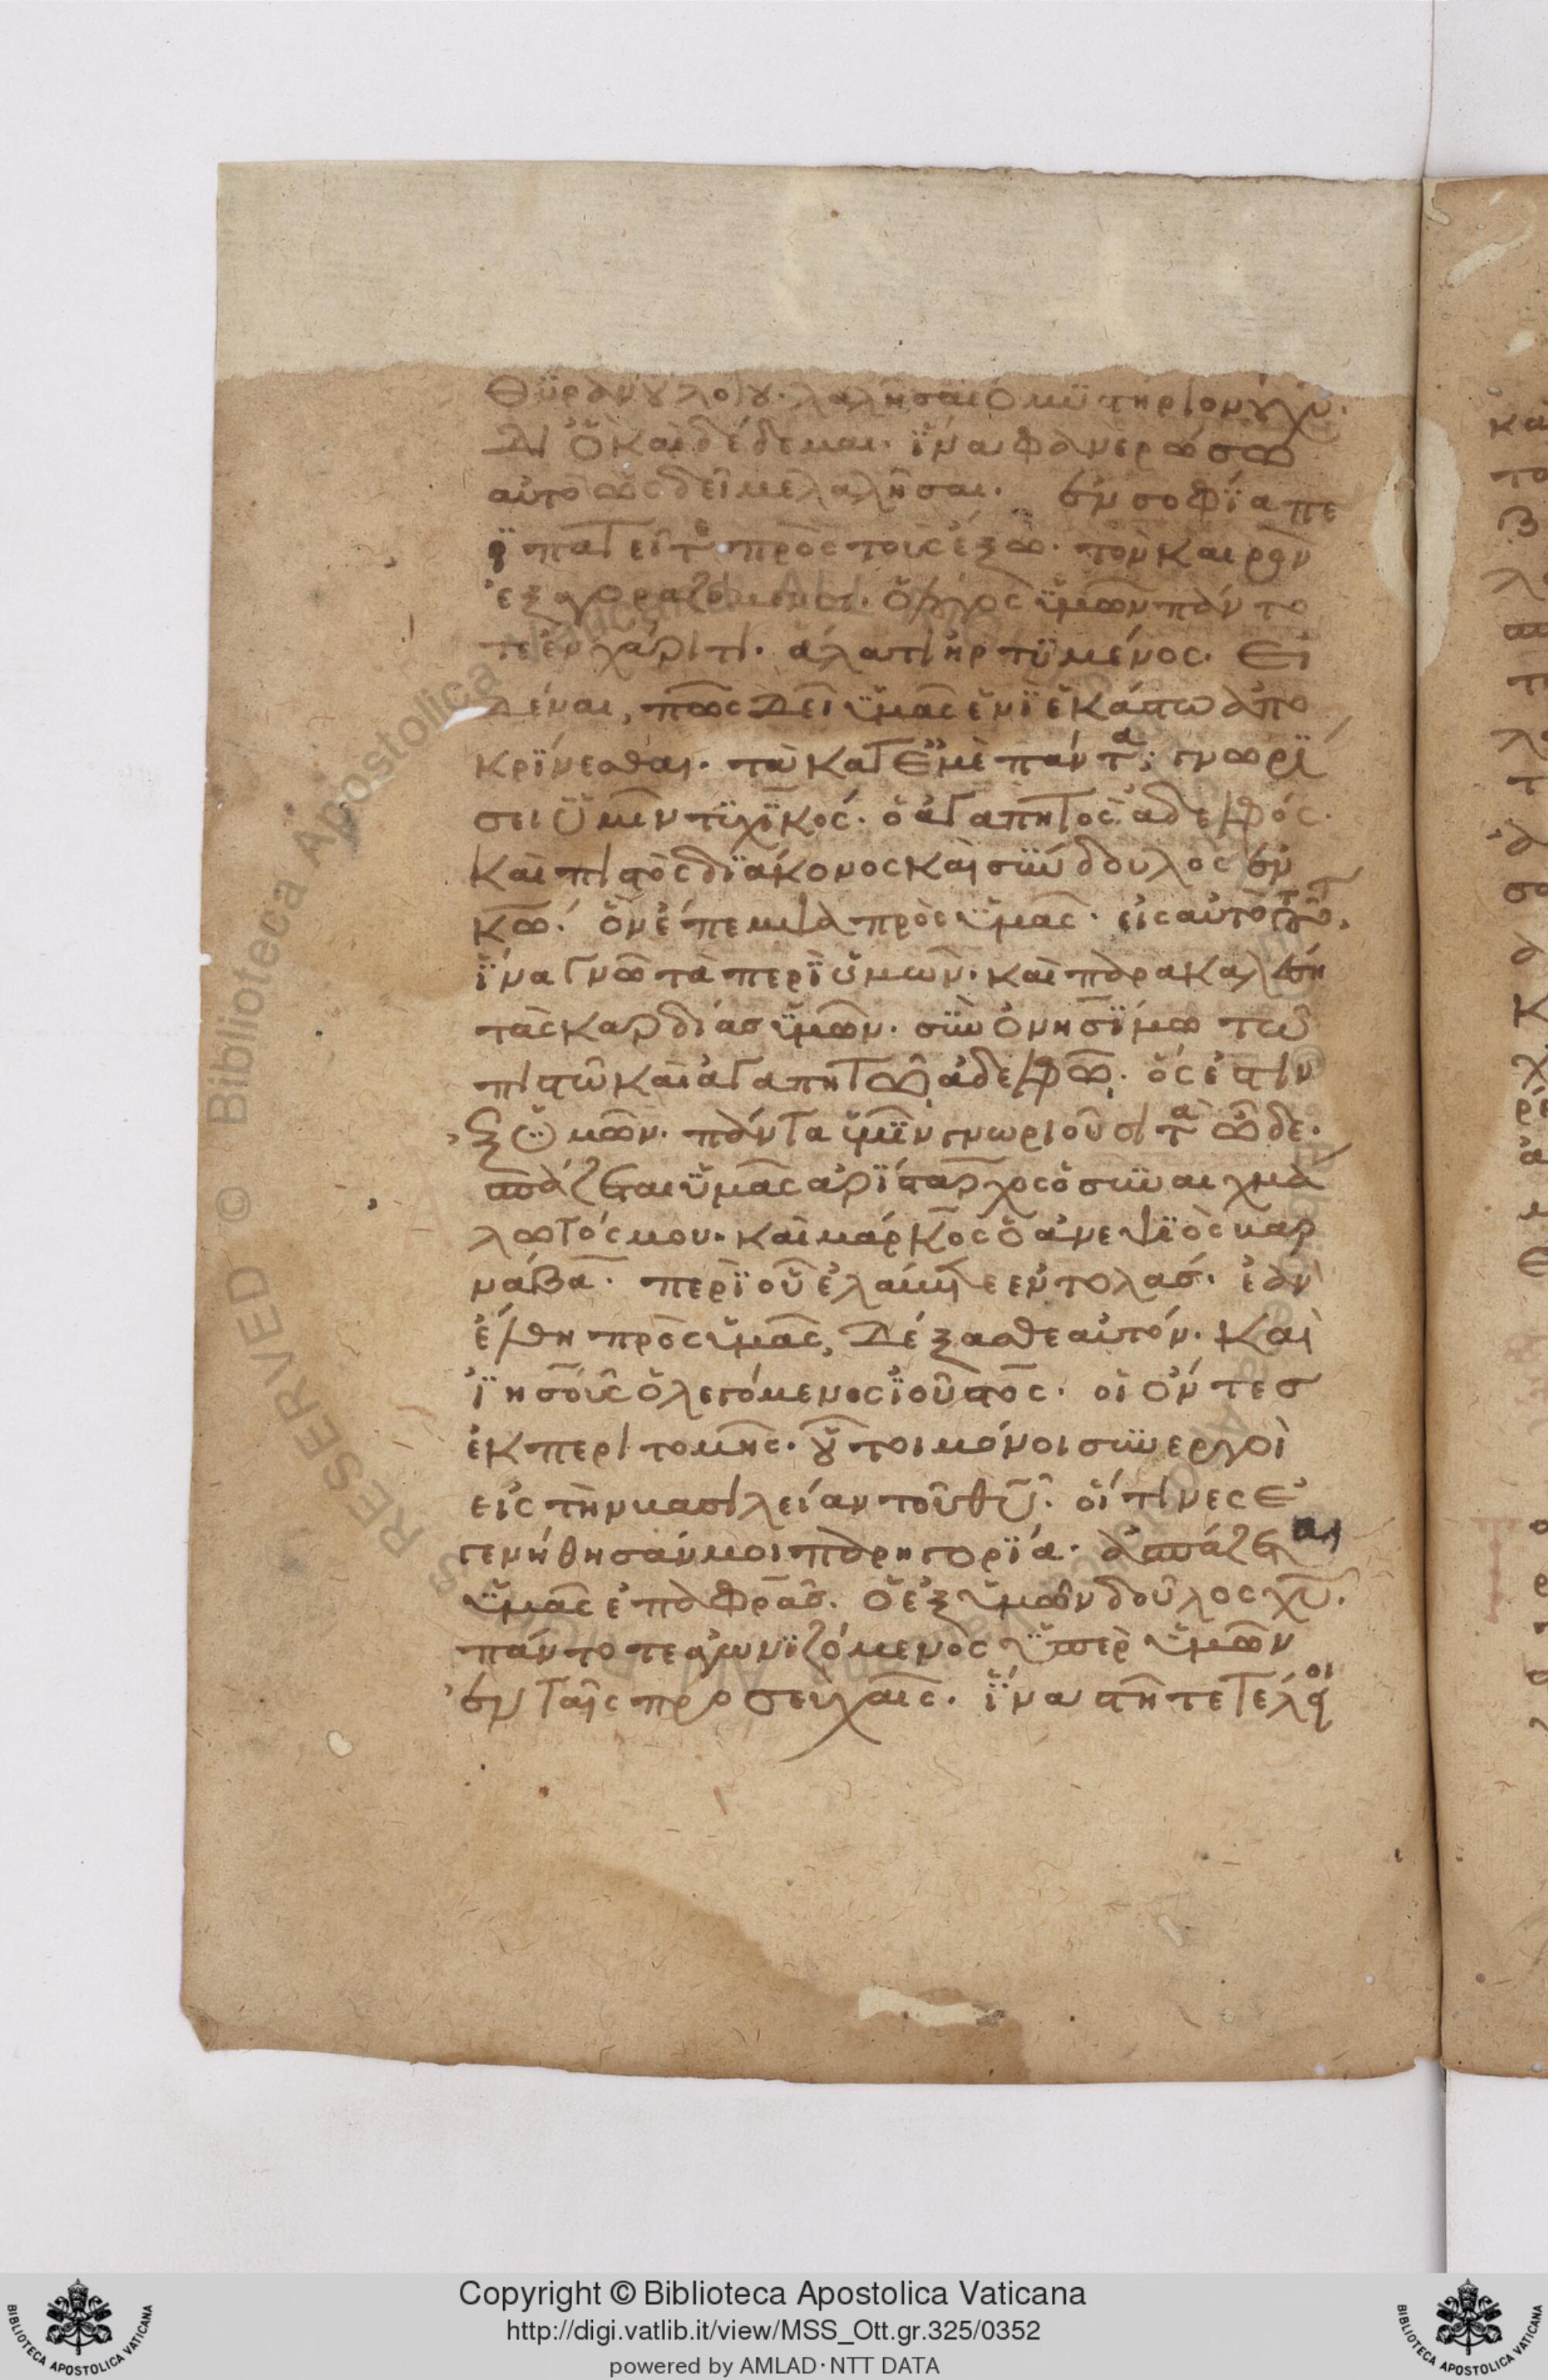 θύραν τοῦ λόγου. λαλῆσαι τὸ μυστήριον τοῦ χυ.
Δι ὃ καὶ δέδεμαι. ἵνα φανερώσω
αὐτὸ ὡς δεῖ με λαλῆσαι. ἐν σοφΐα πε
ρϊπατεῖτε πρὸς τοὺς ἔξω. τὸν καιρὸν
ἐξαγοραζόμενοι. ὁ λόγος ὑμῶν πάντο
τε ἐν χάριτι. ἅλατι ἠρτϋμένος. Εἰ
Δέναι, πῶς Δεῖ ὑμᾶς ἑνῒ ἑκάστω ἀπο
κρϊνεσθαι. τὰ κατ ἐμὲ πάντα, γνωρΐ
σει ὑμῖν τϋχϊκός. ὁ ἀγαπητὸς ἀδελφός.
καὶ πιστὸς δϊάκονος καὶ σύνδουλος ἐν
κω. ὃν ἔπεμψα πρὸς ὑμᾶς. εἰς αὐτὸ τοῦτο.
ἵνα γνῶ τὰ περῒ ὑμῶν. καὶ παρακαλέση
τὰς καρδίας ὑμῶν. σὺν ὀνησΐμω τῶ
πιστῶ καὶ ἀγαπητῶ ἀδελφῶ. ὅς ἐστιν
ἐξ ὑμῶν. πάντα ὑμῖν γνωριοῦσι τὰ ὧδε.
ἀσπάζεται ὑμᾶς ἀρΐσταρχος ὁ συναιχμά
λωτός μου. καὶ μάρκος ὁ ἀνεψϊὸς βαρ
νάβα. περῒ οὗ ἐλάβετε ἐντολάς. ἐὰν
ἔλθη πρὸς ὑμᾶς, Δέξασθε αὐτόν. Καὶ
Ἰησοῦς ὁ λεγόμενος ἰοῦστος. οἱ ὄντες
ἐκ περιτομῆς. οὗτοι μόνοι συνεργοὶ
εἰς τὴν βασιλείαν τοῦ θυ. οἵτινες ἐ
γενήθησάν μοι παρηγορΐα. ἀσπάζεται
ὑμᾶς ἐπαφρᾶς. ὁ ἐξ ὑμῶν δοῦλος χυ.
πάντοτε ἀγωνϊζόμενος ὑπὲρ ὑμῶν
ἐν ταῖς προσευχαῖς. ἵνα στῆτε τέλειοι
Copyright © Biblioteca Apostolica Vaticana
http://digi.vatlib.it/view/MSS_Ott.gr.325/0352
powered by AMLAD·NTT DATA